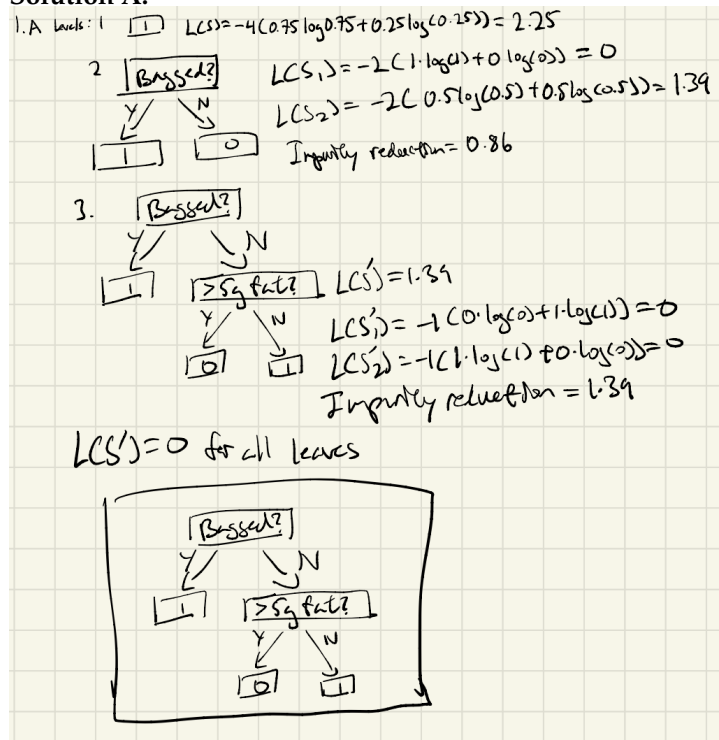 Solution A:
1.A Levels: 1 1 L(S)=-4(0.75 log0.75+0.25log(0.25))=2.25
2 Bagged? L(S₁)=-2(1·log(1)+0log(0))=0
Y N L(S₂)=-2(0.5log(0.5)+0.5log(0.5))=1.39
1 0 Impurity reduction=0.86
3. Bagged?
Y N
1 >5g fat? L(S')=1.39
Y N L(S'₁)=-1(0·log(0)+1·log(1))=0
0 1 L(S'₂)=-1(1·log(1)+0·log(0))=0
Impurity reduction=1.39
L(S')=0 for all leaves
Bagged?
Y N
1 >5g fat?
Y N
0 1